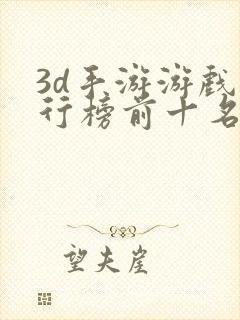 3d手游游戏
行榜前十名
望夫崖